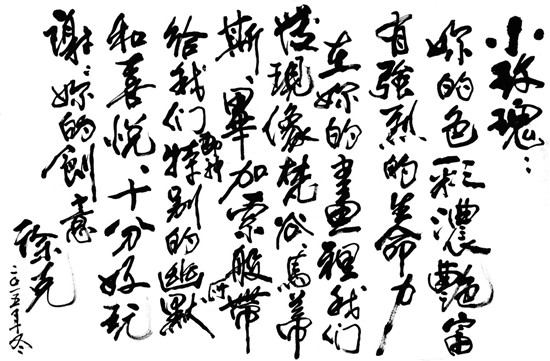 小玫瑰：
妳的色彩濃艷富
有強烈的生命力
在妳的畫裡我们
發現像梵谷、馬蒂
斯、畢加索般帶
给我们特别的幽默
和喜悦、十分好玩
謝謝妳的創意
徐克
二〇一五年冬